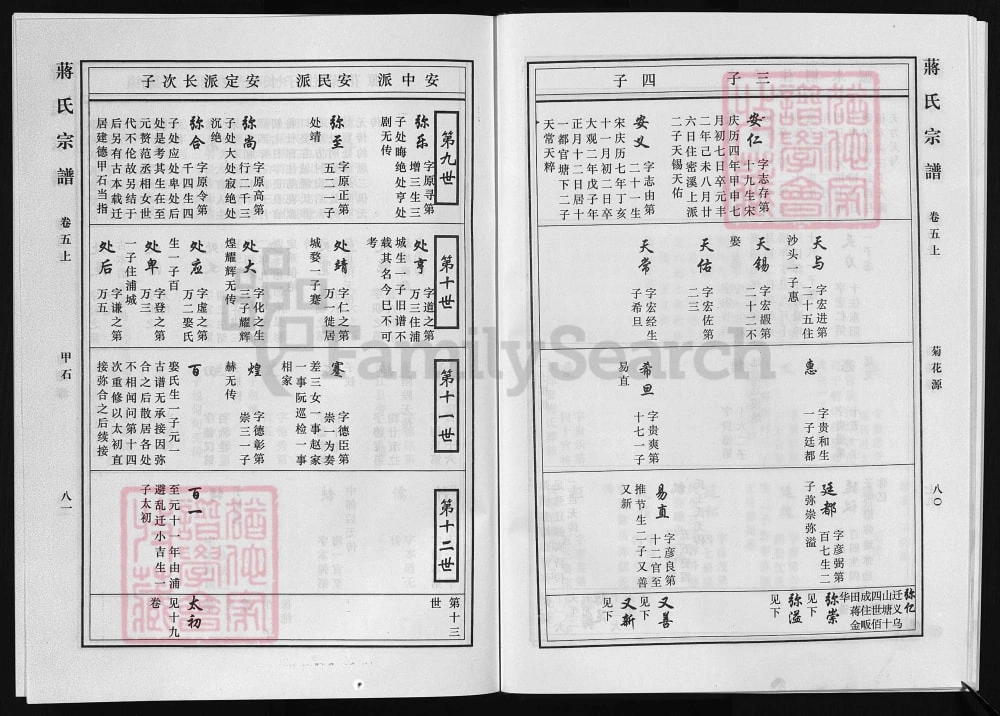 蔣氏宗譜
卷五上
菊花源
八〇
三子
四子
安仁 字志存第
十九生宋
庆历四年甲申七
月初七日卒元丰
二年己未八月廿
六日住密溪上派
二子天锡天佑
安义 字志由第
二十一生
宋庆历七年丁亥
十一月初二日卒
大观二年戊子年
正月十二日居十
一都官塘下二子
天常天粹
天与 字宏进第
二十五住
沙头一子惠
天锡 字宏嘏第
二十二不
娶
天佑 字宏佐第
二三
天常 字宏经生
子希旦
惠 字贵和生
一子廷都
希旦 字贵爽第
十七一子
易直
廷都 字彦弼第
百七生二
子弥崇弥溢
易直 字彦良第
十二官至
推节生二子又善
又新
弥亿
迁义乌
山塘十
四世佰
成住畈
田蒋金
华
弥崇
见下
弥溢
见下
又善
见下
又新
见下
安中派
安民派
安定派长次子
第九世
弥乐 字原寻第
增三生三
子处晦绝处亨处
剧无传
弥至 字原正第
五二一子
处靖
弥尚 字原高第
行二千三
子处大处寂绝处
沉绝
弥合 字原令第
千四生四
子处应处卑处后
处是考其生在至
元赘范丞相女世
代不伦故另结于
后另有古本载迁
居建德甲石当指
第十世
处亨 字道之第
万三住浦
城生一子旧谱不
载其名今已不可
考
处靖 字仁之第
万一徙居
城婺一子蹇
处大 字化之生
三子耀辉
煌耀辉无传
处应 字虚之第
万二娶氏
生一子百
处卑 字登之第
万三
一子住浦城
处后 字谦之第
万五
第十一世
蹇 字德臣第
崇一为奏
差三女一事赵家
一事阮巡检一事
相家
煌 字德彰第
崇三一子
赫无传
百
娶氏生一子元一
古谱无承接因弥
合之后散居各处
不相闻问第十四
次重修以太初直
接弥合之后续接
第十二世
百一
至元十一年由浦
避乱迁小吉生一
子太初
第十三
世
太初
见十九
卷
蔣氏宗譜
卷五上
甲石
八一
FamilySearch